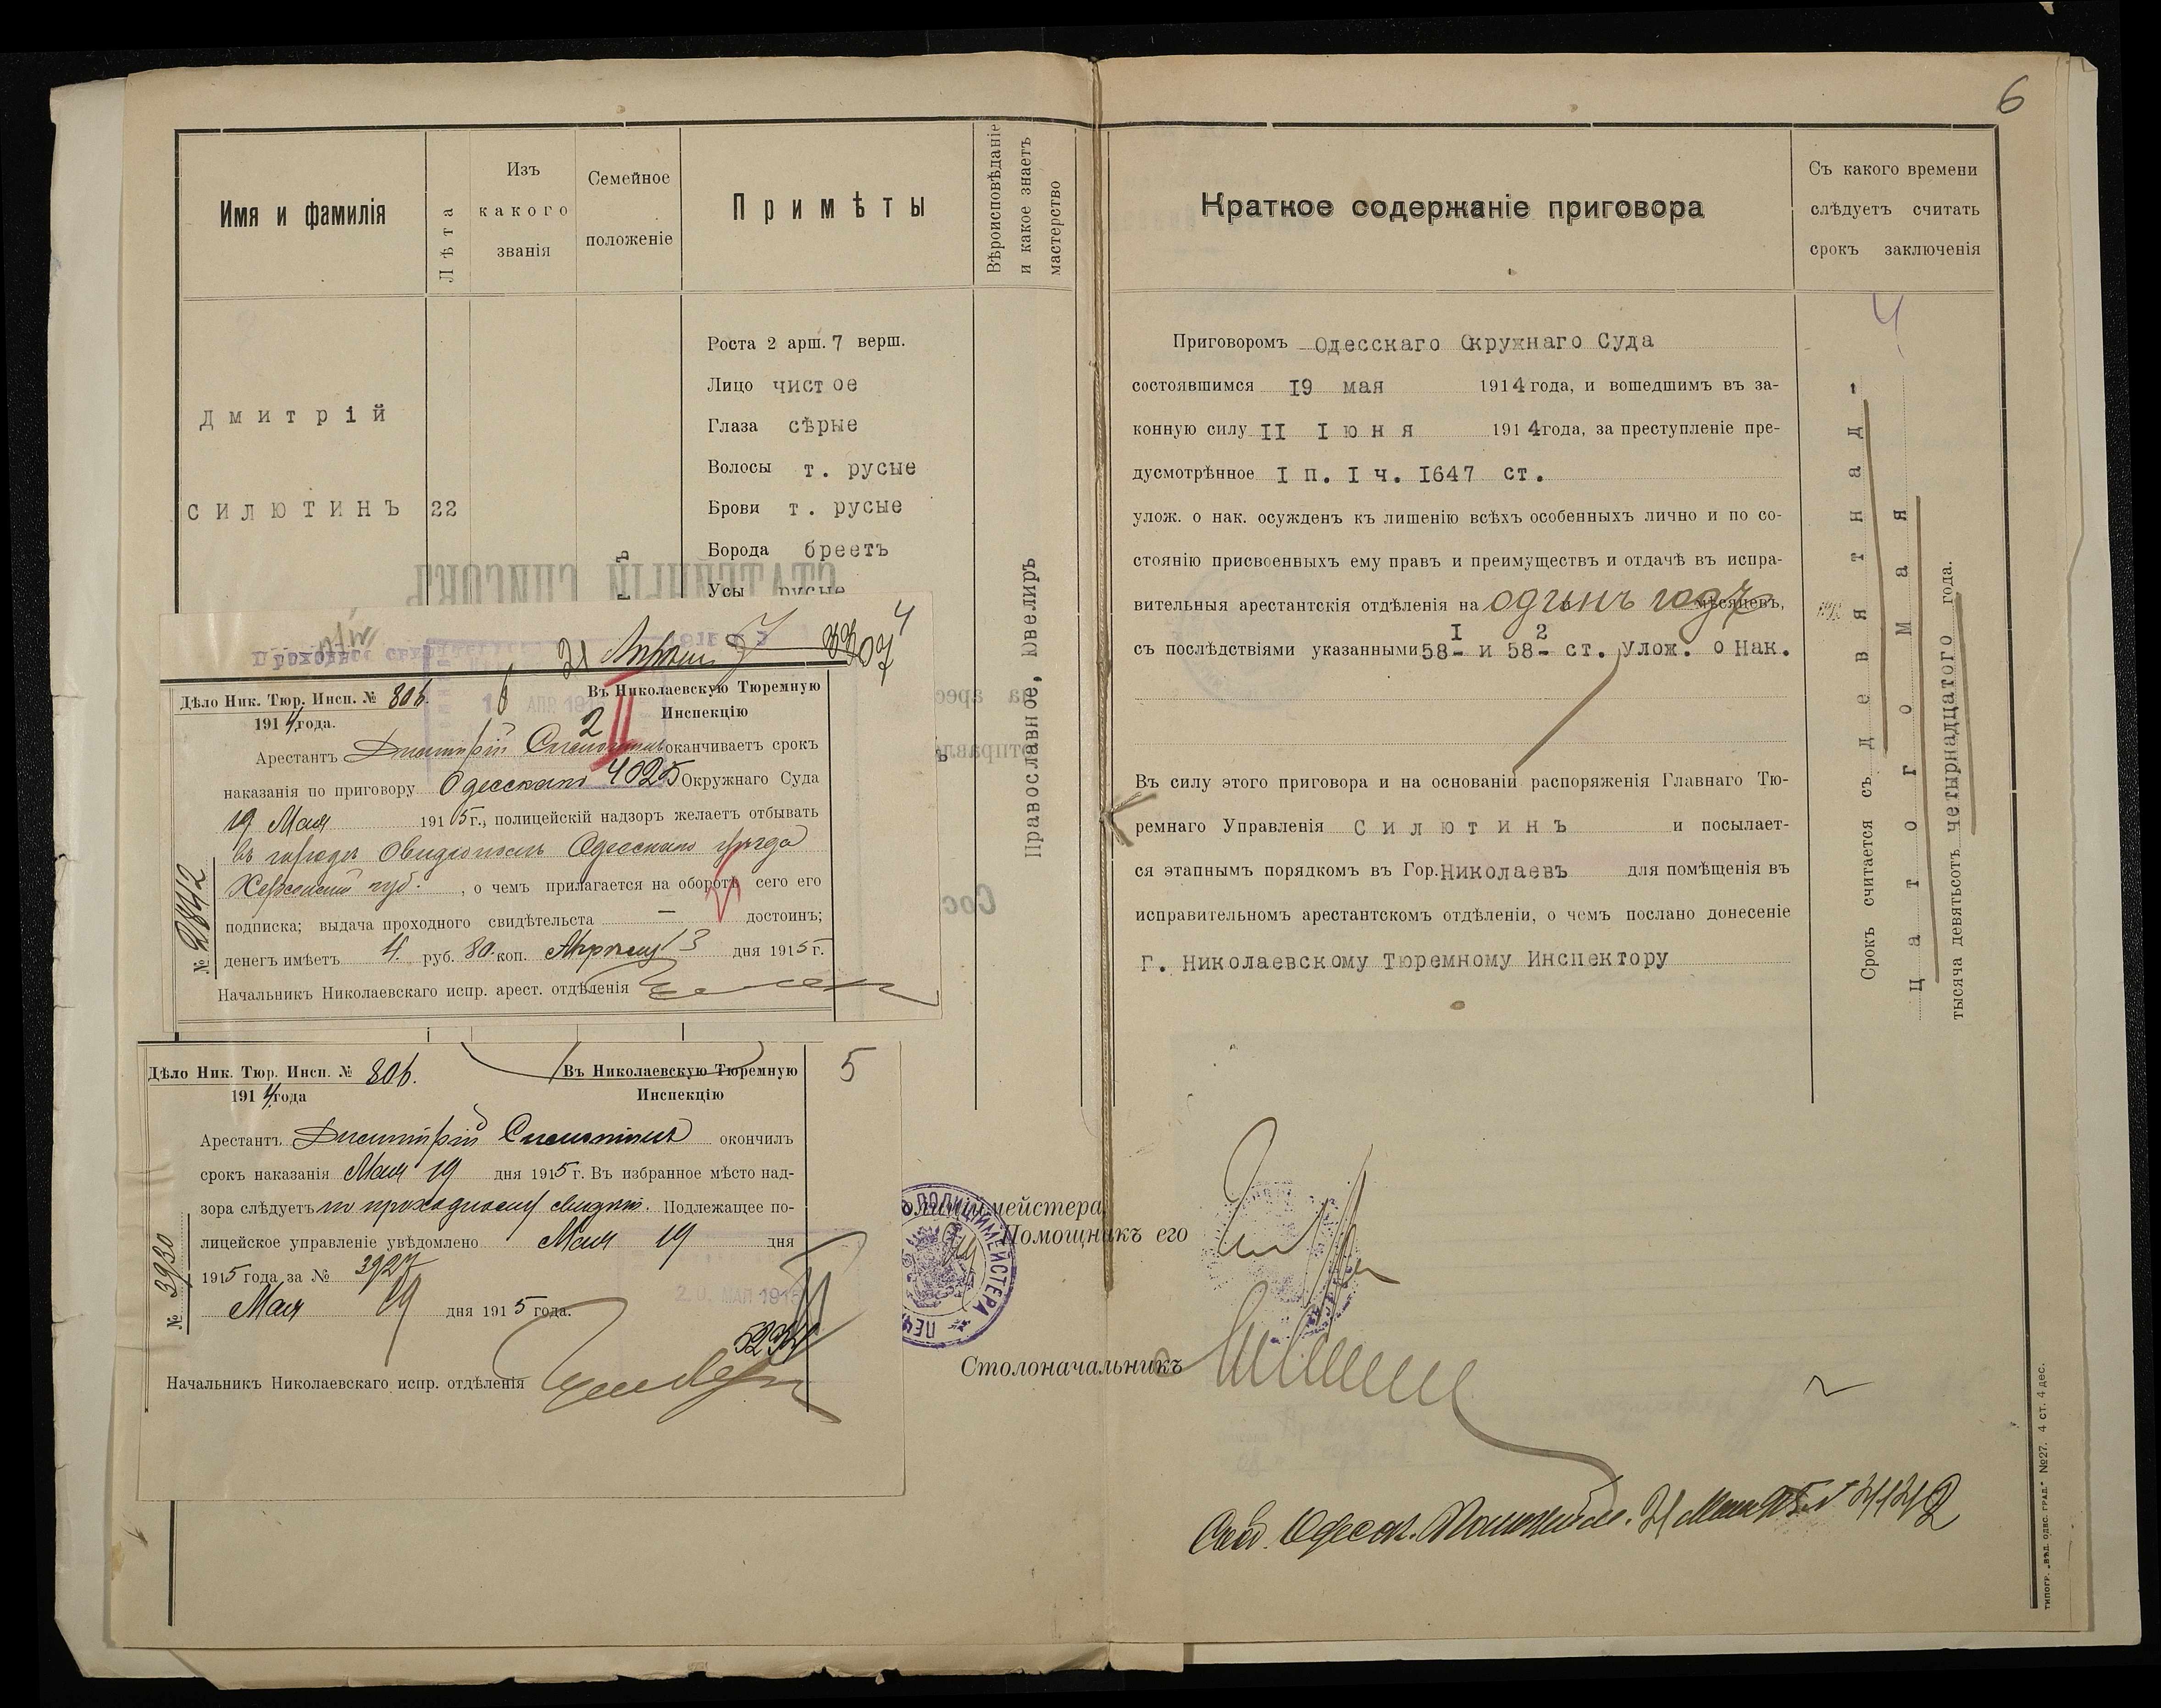 6
Имя и фамилія
Лѣта
Изъ
какого
званія
Семейное
положеніе
Примѣты
Вѣроисповѣданіе
и какое знаетъ
мастерство
Дмитрій
Силютинъ
22
Роста 2 арш. 7 верш.
Лицо чистое
Глаза сѣрые
Волосы т. русые
Брови т. русые
Борода бреетъ
Усы русые
Православное, Ювелиръ
СТАТЕЙНЫЙ СПИСОКЪ
4
21 Апрѣля
3307
Дѣло Ник. Тюр. Инсп. № 806.
1914 года.
Въ Николаевскую Тюремную
Инспекцію
2
Арестантъ Дмитрій Силютинъ оканчиваетъ срокъ
4025
наказанія по приговору Одесскаго Окружнаго Суда
19 Мая 1915 г., полицейскій надзоръ желаетъ отбывать
въ городѣ Овидіополь Одесскаго уѣзда
Херсонской губ. , о чемъ прилагается на оборотѣ сего его
подписка; выдача проходного свидѣтельста — достоинъ;
денегъ имѣетъ 4. руб. 80. коп. Апрѣля 13 дня 1915 г.
Начальникъ Николаевскаго испр. арест. отдѣленія
№ 2842
5
Дѣло Ник. Тюр. Инсп. № 806.
1914 года
Въ Николаевскую Тюремную
Инспекцію
Арестантъ Дмитрій Силютинъ окончилъ
срокъ наказанія Мая 19 дня 1915 г. Въ избранное мѣсто над-
зора слѣдуетъ по проходному свидѣт. Подлежащее по-
лицейское управленіе увѣдомлено Мая 19 дня
1915 года за № 3927
Мая 19 дня 1915 года.
20 МАЯ 1915
5234
Начальникъ Николаевскаго испр. отдѣленія
№ 3930
Краткое содержаніе приговора
Съ какого времени
слѣдуетъ считать
срокъ заключенія
Приговоромъ Одесскаго Окружнаго Суда
состоявшимся 19 мая 1914 года, и вошедшимъ въ за-
конную силу II Іюня 1914 года, за преступленіе пре-
дусмотрѣнное I п. I ч. 1647 ст.
улож. о нак. осужденъ къ лишенію всѣхъ особенныхъ лично и по со-
стоянію присвоенныхъ ему правъ и преимуществъ и отдачѣ въ испра-
вительныя арестантскія отдѣленія на одинъ годъ мѣсяцевъ,
съ послѣдствіями указанными 58-I и 58-2 ст. улож. о Нак.
Въ силу этого приговора и на основаніи распоряженія Главнаго Тю-
ремнаго Управленія Силютинъ и посылает-
ся этапнымъ порядкомъ въ Гор. Николаевъ для помѣщенія въ
исправительномъ арестантскомъ отдѣленіи, о чемъ послано донесеніе
Г. Николаевскому Тюремному Инспектору
4
Срокъ считается съ девятнад-
цатого Мая
тысяча девятьсотъ четырнадцатого года.
Полиціймейстера
Помощникъ его
ПОЛИЦІЙМЕЙСТЕРА
Столоначальникъ
21 Мая 915 № 21212
ТИПОГР. „ВѢД. ОДЕС. ГРАД." №27. 4 СТ. 4 ДЕС.